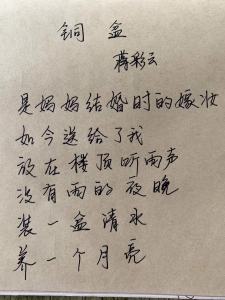 铜 盆
蒋彩云
是妈妈结婚时的嫁妆
如今送给了我
放在楼顶听雨声
没有雨的夜晚
装一盆清水
养一个月亮